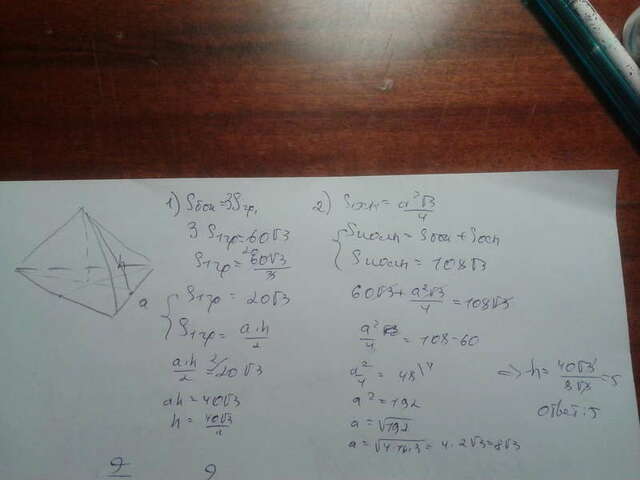 1) Sбок=3S1гр.
3 S1гр=60√3
S1гр=60√3/3
{ S1гр = 20√3
S1гр= a·h/2
a·h/2=20√3
ah=40√3
h=40√3/a
a
h
2) Sосн=a²√3/4
{ Sполн=Sбок+Sосн
Sполн=108√3
60√3+a²√3/4=108√3
a²/4=108-60
a²/4=48
a²=192
a=√192
a=√4·16·3=4·2√3=8√3
=> h=40√3/8√3=5
ответ:5